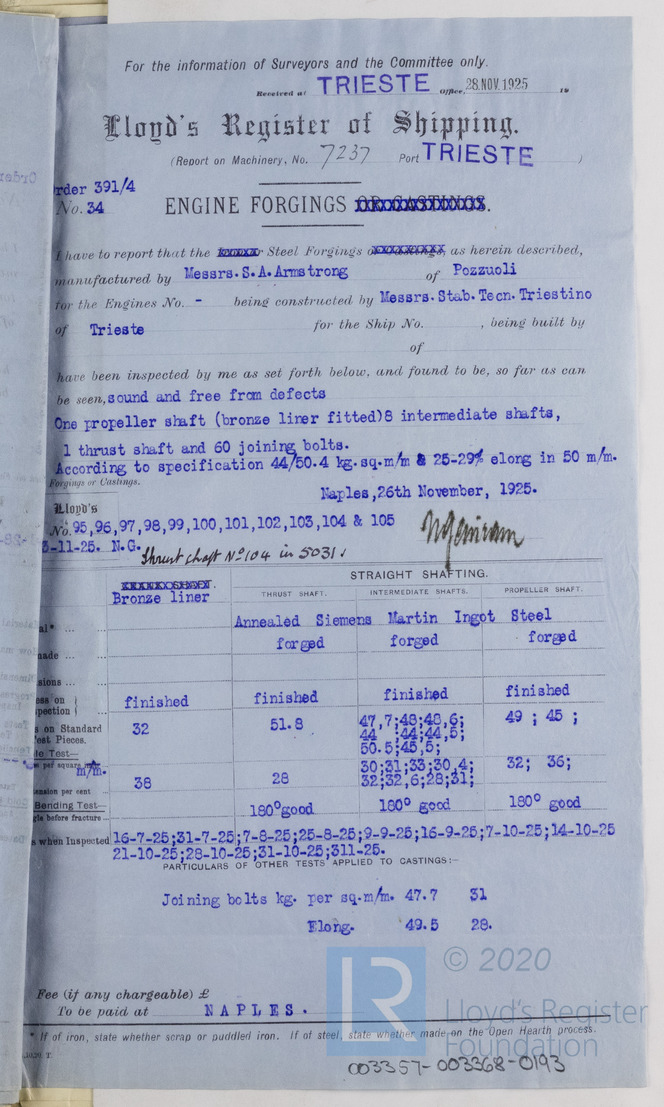 For the information of Surveyors and the Committee only.
Received at TRIESTE Office, 28.NOV.1925 19
Lloyd's Register of Shipping.
(Report on Machinery, No. 7237 Port TRIESTE )
rder 391/4
No. 34
ENGINE FORGINGS OR CASTINGS.
I have to report that the Steel Forgings or Castings, as herein described,
manufactured by Messrs. S.A. Armstrong of Pozzuoli
for the Engines No. - being constructed by Messrs. Stab. Tecn. Triestino
of Trieste for the Ship No. , being built by
of
have been inspected by me as set forth below, and found to be, so far as can
be seen, sound and free from defects
One propeller shaft (bronze liner fitted) 8 intermediate shafts,
1 thrust shaft and 60 joining bolts.
According to specification 44/50.4 kg.sq.m/m & 25-29% elong in 50 m/m.
Forgings or Castings.
Naples, 26th November, 1925.
Lloyd's
No. 95,96,97,98,99,100,101,102,103,104 & 105
3-11-25. N.G.
Thrust shaft No 104 in 5031
STRAIGHT SHAFTING.
Bronze liner
THRUST SHAFT. INTERMEDIATE SHAFTS. PROPELLER SHAFT.
al* ... ... Annealed Siemens Martin Ingot Steel
made ... ... forged forged forged
sions ... ...
ess on
pection finished finished finished finished
s on Standard
Test Pieces. 32 51.8 47,7;48;48,6; 49 ; 45 ;
44 ;44;44,5;
50.5;45,5;
le Test—
per square m/m. 30;31;33;30,4; 32; 36;
ension per cent 38 28 32;32,6;28;31;
Bending Test—
gle before fracture 180° good 180° good 180° good
s when Inspected 16-7-25;31-7-25;7-8-25;25-8-25;9-9-25;16-9-25;7-10-25;14-10-25
21-10-25;28-10-25;31-10-25;311-25.
PARTICULARS OF OTHER TESTS APPLIED TO CASTINGS:—
Joining bolts kg. per sq.m/m. 47.7 31
Elong. 49.5 28.
Fee (if any chargeable) £
To be paid at NAPLES.
* If of iron, state whether scrap or puddled iron. If of steel, state whether made on the Open Hearth process.
.10.20. T.
© 2020
LR
Lloyd's Register
Foundation
003357-003368-0193